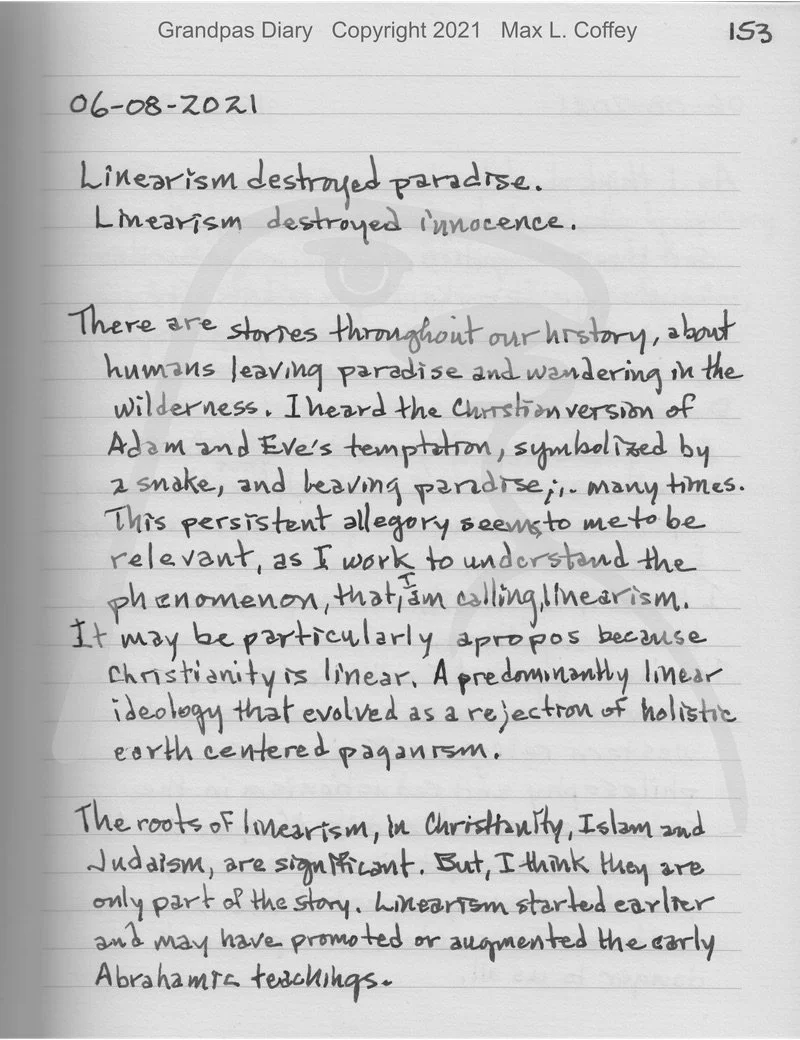 Grandpas Diary Copyright 2021 Max L. Coffey
153
06-08-2021
Linearism destroyed paradise.
Linearism destroyed innocence.
There are stories throughout our history, about
humans leaving paradise and wandering in the
wilderness. I heard the Christian version of
Adam and Eve's temptation, symbolized by
a snake, and leaving paradise,... many times.
This persistent allegory seems to me to be
relevant, as I work to understand the
phenomenon, that, I am calling, linearism.
It may be particularly apropos because
Christianity is linear. A predominantly linear
ideology that evolved as a rejection of holistic
earth centered paganism.
The roots of linearism, in Christianity, Islam and
Judaism, are significant. But, I think they are
only part of the story. Linearism started earlier
and may have promoted or augmented the early
Abrahamic teachings.